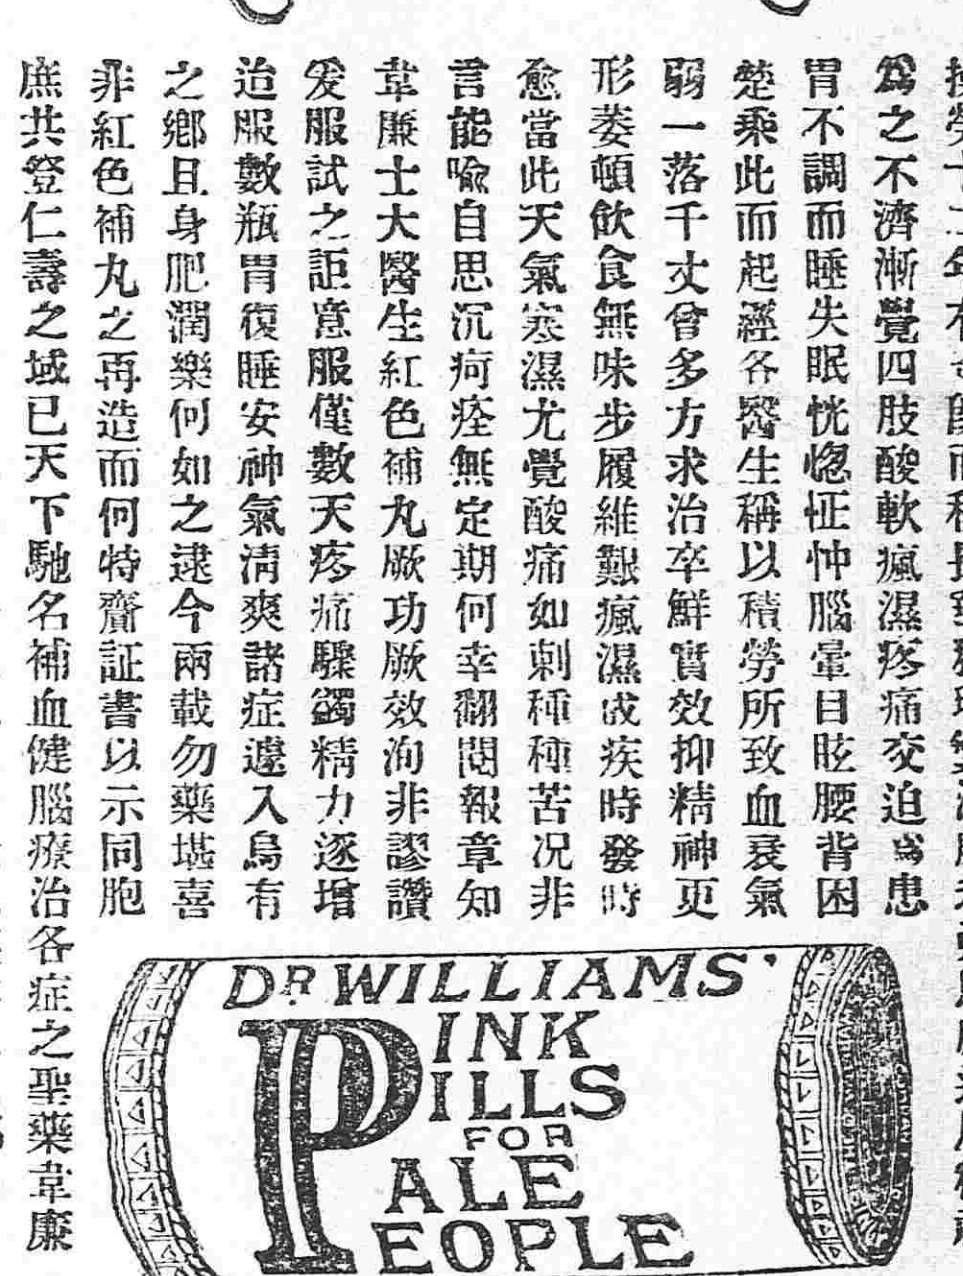 為之不濟漸覺四肢酸軟瘋濕疼痛交迫為患
胃不調而睡失眠恍惚怔忡腦暈目眩腰背困
楚乘此而起經各醫生稱以積勞所致血衰氣
弱一落千丈曾多方求治卒鮮實效抑精神更
形萎頓飲食無味步履維艱瘋濕成疾時發時
愈當此天氣寒濕尤覺酸痛如刺種種苦况非
言能喻自思沉疴痊無定期何幸翻閱報章知
韋廉士大醫生紅色補丸厥功厥效洵非謬讚
爰服試之詎意服僅數天疼痛驟蠲精力逐增
迨服數瓶胃復睡安神氣清爽諸症遽入烏有
之鄉且身肥潤樂何如之逮今兩載勿藥堪喜
非紅色補丸之再造而何特齎証書以示同胞
庶共登仁壽之域已天下馳名補血健腦療治各症之聖藥韋廉
DR WILLIAMS'
PINK
PILLS
FOR
PALE
PEOPLE